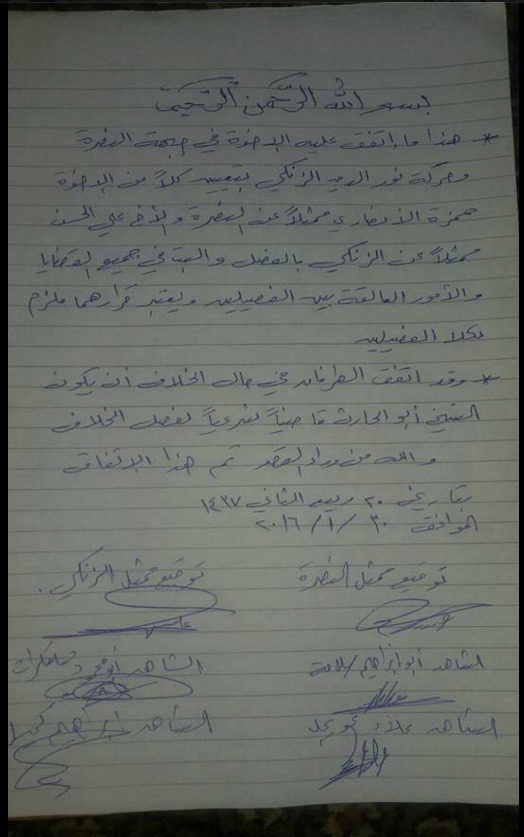 بسم الله الرَّحمن الرَّحيم
* هذا ما إتفق عليه الإخوة في جبهة النصرة
وحركة نور الدين الزنكي بتعيين كلاً من الإخوة
حمزة الأنصاري ممثلاً عن النصرة والأخ علي الحسن
ممثلاً عن الزنكي بالفصل والبت في جميع القضايا
والأمور العالقة بين الفصيلين ويعتبر قرارهما ملزم
لكلا الفصيلين
* وقد اتفق الطرفان في حال الخلاف أن يكون
الشيخ أبو الحارث قاضياً شرعياً لفصل الخلاف
والله من وراء القصد تم هذا الإتفاق
بتاريخ ٢٠ ربيع الثاني ١٤٣٧
الموافق ٣٠ / ١ / ٢٠١٦
توقيع ممثل النصرة
توقيع ممثل الزنكي .
الشاهد أبو ابراهيم سلامة
الشاهد أبو محمود
الشاهد علاء
الشاهد ابراهيم